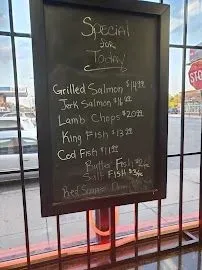 Special
for
Today
Grilled Salmon $14.99
Jerk Salmon $16.99
Lamb Chops $20.99
King Fish $13.99
Cod Fish $11.99
Butter Fish $2/pc
Salt Fish $3/pc
Red Snapper
STOP